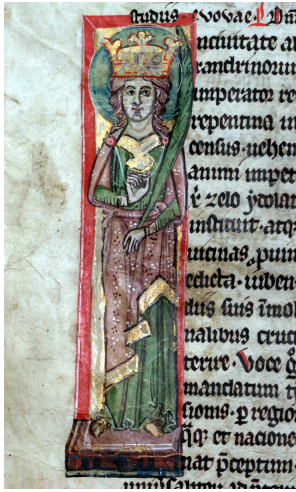 studiis evovae. Dn̄
nciuitate a
randrinoru
imperator re
repentina in
census. uehem
animi impet
zelo ydolat
instituit. atq;
uicinas, puin
edicta. iuben
diis suis īmol
nalibus cruc
terire. Voce
mandatum t
sionis. p regio
et nacione
nat p̄ceptim.